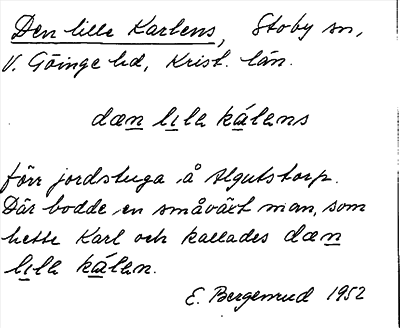 Den lille Karlens, Stoby sn,
V. Göinge hd, Krist. län.
dæn lila kálens
förr jordstuga å Algutstorp.
Där bodde en småväxt man, som
hette Karl och kallades dæn
lila kálen.
E. Bergenrud 1952